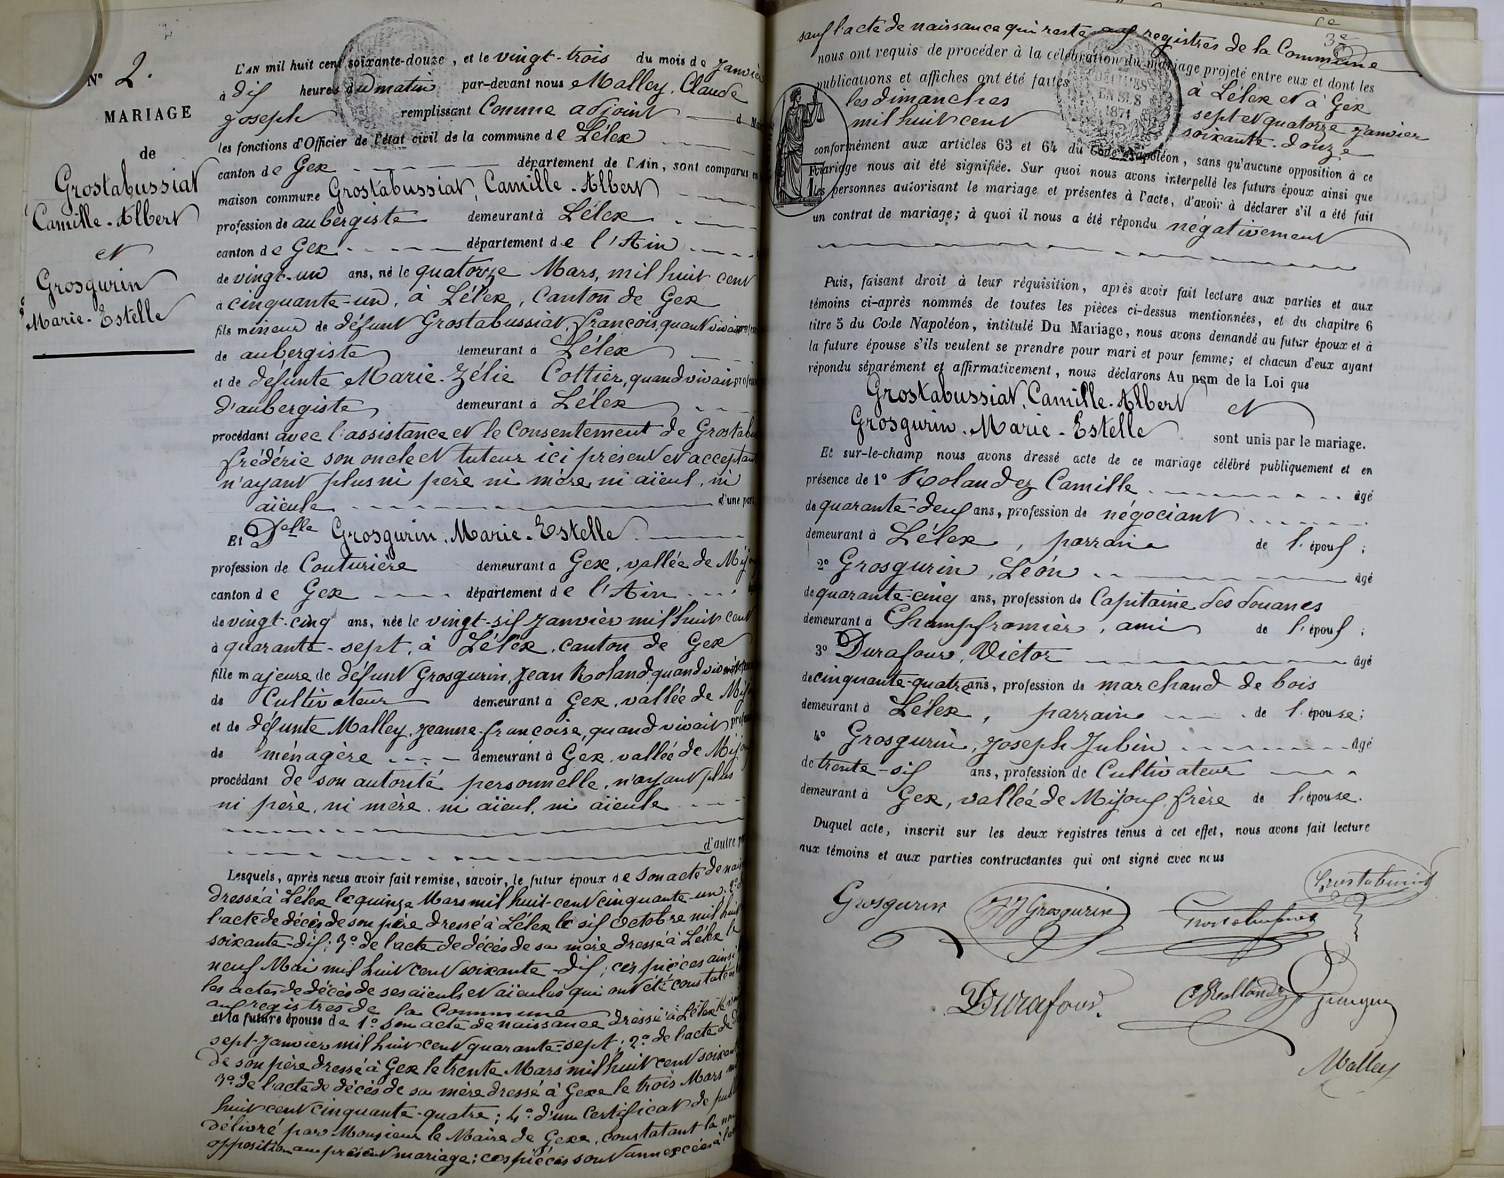 N° 2.
MARIAGE
de
Grostabussiat
Camille-Albert
et
Grosgurin
Marie-Estelle
L'AN mil huit cent soixante-douze, et le vingt-trois du mois de Janvier
à dix heures du matin par-devant nous Malley, Claude
Joseph remplissant Comme adjoint
les fonctions d'Officier de l'état civil de la commune de Lélex
canton de Gex département de l'Ain, sont comparus en
maison commune Grostabussiat, Camille-Albert
profession de aubergiste demeurant à Lélex
canton de Gex département de l'Ain
de vingt-un ans, né le quatorze Mars, mil huit cent
cinquante-un, à Lélex, Canton de Gex
fils mineur de défunt Grostabussiat, françois, quant vivait
de aubergiste demeurant à Lélex
et de défunte Marie-Zélie Cottier, quand vivait
d'aubergiste demeurant à Lélex
procédant avec l'assistance et le Consentement de
frédéric son oncle et tuteur ici présent et acceptant
n'ayant plus ni père ni mère ni aïeul, ni
aïeule d'une part
Et Delle Grosgurin, Marie-Estelle
profession de Couturière demeurant à Gex, vallée de
canton de Gex département de l'Ain
de vingt-cinq ans, née le vingt-six Janvier mil huit cent
quarante-sept, à Lélex, canton de Gex
fille majeure de défunt Grosgurin, Jean Roland, quand vivait
de Cultivateur demeurant à Gex, vallée de
et de défunte Malley, Jeanne-françoise, quand vivait
de ménagère demeurant à Gex, vallée de
procédant de son autorité personnelle, n'ayant plus
ni père, ni mère, ni aïeul, ni aïeule
d'autre part
Lesquels, après nous avoir fait remise, savoir, le futur époux de son acte de
dressé à Lélex le quinze Mars mil huit cent cinquante un; 2°
l'acte de décès de son père dressé à Lélex le six Octobre mil huit
soixante-dix; 3° de l'acte de décès de sa mère dressé à Lélex le
neuf Mai mil huit cent soixante-dix; ces pièces ainsi
les actes de décès de ses aïeuls et aïeules qui ont été constatés
aux registres de la Commune
et la future épouse de 1° son acte de naissance dressé à Lélex le
sept Janvier mil huit cent quarante-sept; 2° de l'acte de
de son père dressé à Gex le trente Mars mil huit cent
3° de l'acte de décès de sa mère dressé à Gex le trois Mars
huit cent cinquante-quatre; 4° d'un Certificat de
délivré par Monsieur le Maire de Gex, constatant la
opposition au présent mariage; ces pièces sont annexées à
3e
sauf l'acte de naissance qui reste aux registres de la Commune
nous ont requis de procéder à la célébration du mariage projeté entre eux et dont les
publications et affiches ont été faites à Lélex et à Gex
les dimanches sept et quatorze Janvier
mil huit cent soixante-douze
conformément aux articles 63 et 64 du Code Napoléon, sans qu'aucune opposition à ce
mariage nous ait été signifiée. Sur quoi nous avons interpellé les futurs époux ainsi que
les personnes autorisant le mariage et présentes à l'acte, d'avoir à déclarer s'il a été fait
un contrat de mariage; à quoi il nous a été répondu négativement
Puis, faisant droit à leur réquisition, après avoir fait lecture aux parties et aux
témoins ci-après nommés de toutes les pièces ci-dessus mentionnées, et du chapitre 6
titre 5 du Code Napoléon, intitulé Du Mariage, nous avons demandé au futur époux et à
la future épouse s'ils veulent se prendre pour mari et pour femme; et chacun d'eux ayant
répondu séparément et affirmativement, nous déclarons Au nom de la Loi que
Grostabussiat, Camille-Albert et
Grosgurin, Marie-Estelle sont unis par le mariage.
Et sur-le-champ nous avons dressé acte de ce mariage célébré publiquement et en
présence de 1° Rolandez Camille âgé
de quarante-deux ans, profession de négociant
demeurant à Lélex, parrain de l'époux;
2° Grosgurin, Léon âgé
de quarante-cinq ans, profession de Capitaine des douanes
demeurant à Champfromier, ami de l'époux;
3° Durafour, Victor âgé
de cinquante-quatre ans, profession de marchand de bois
demeurant à Lélex, parrain de l'épouse;
4° Grosgurin, Joseph Jubin âgé
de trente-six ans, profession de Cultivateur
demeurant à Gex, vallée de Mijoux, frère de l'épouse.
Duquel acte, inscrit sur les deux registres tenus à cet effet, nous avons fait lecture
aux témoins et aux parties contractantes qui ont signé avec nous
Grosgurin JJ Grosgurin
Durafour
Malley